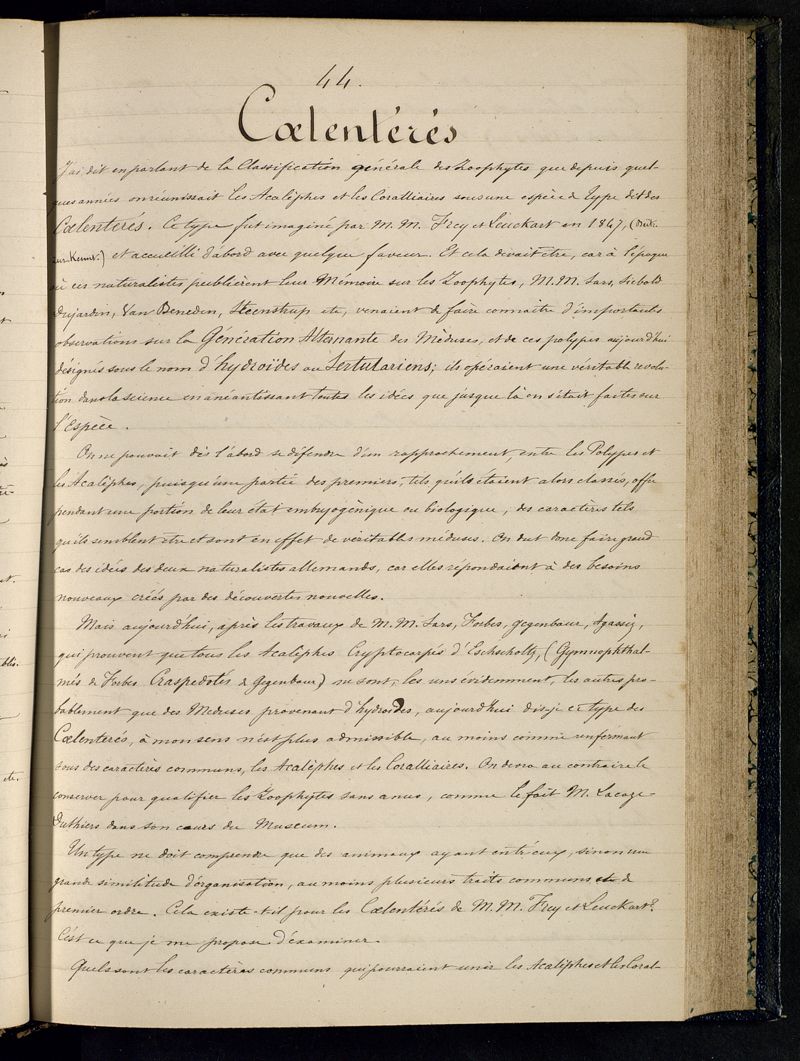 44.
Cœlentérés
J'ai dit en parlant de la Classification générale des Zoophytes que depuis quel-
ques années on réunissait les Acalèphes et les Coralliaires sous une espèce de type dit des
Cœlenterés. Ce type fut imaginé par M. M. Frey et Leuckart en 1847, (Beit.
zur Kennt.) et accueilli d'abord avec quelque faveur. Et cela devait être, car à l'époque
où ces naturalistes publièrent leur Mémoire sur les Zoophytes, M. M. Sars, Siebold
Dujardin, Van Beneden, Steenstrup etc, venaient de faire connaitre d'importants
observations sur la Génération Alternante des Méduses, et de ces polypes aujourd'hui
désignés sous le nom d'hydroïdes ou Sertulariens; ils opéraient une véritable revolu-
tion dans la science en anéantissant toutes les idées que jusque là on s'était faites sur
l'Espèce.
On ne pouvait dès l'abord se défendre d'un rapprochement, entre les Polypes et
les Acalèphes, puisqu'une partie des premiers, tels qu'ils étaient alors classés, offre
pendant une portion de leur état embryogènique ou biologique, des caractères tels
qu'ils semblent etre et sont en effet de véritables méduses. On dut donc faire grand
cas des idées des deux naturalistes allemands, car elles répondaient à des besoins
nouveaux créés par des découvertes nouvelles.
Mais aujourd'hui, après les travaux de M. M. Sars, Forbes, Gegenbaur, Agassiz,
qui prouvent que tous les Acalèphes Cryptocarpes d'Eschscholtz, (Gymnophthal-
més de Forbes Craspedotés de Gegenbaur) ne sont, les uns évidemment, les autres pro-
bablement que des Meduses provenant d'hydroides, aujourd'hui dis-je ce type des
Cœlenterés, à mon sens n'est plus admissible, au moins comme renfermant
sous des caractères communs, les Acalèphes et les Coralliaires. On devra au contraire le
conserver pour qualifier les Zoophytes sans anus, comme le fait M. Lacaze-
Duthiers dans son cours du Museum.
Un type ne doit comprendre que des animaux ayant entr'eux, sinon une
grande similitude d'organisation, au moins plusieurs traits communs de
premier ordre. Cela existe-t-il pour les Cœlentérés de M. M. Frey et Leuckart?
C'est ce que je me propose d'éxaminer.
Quels sont les caractères communs qui pourraient unir les Acalèphes et les Coral-